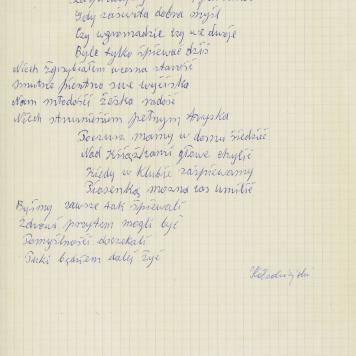 Gdy zaświta dobra myśl
Czy w gromadzie czy we dwoje
Byle tylko śpiewać dziś
Niech zgrzybiałem wiosna starość
Smutne piętno swe wyciska
Nam młodości życia radość
Niech strumieniem pełnym tryska
Pocóż mamy w domu siedzieć
Nad książkami głowę chylić
Kiedy w klubie zaśpiewamy
Piosenką można czas umilić
Byśmy zawsze tak śpiewali
Zdrowi przytem mogli być
Pomyślności doczekali
Póki będziem dalej żyć